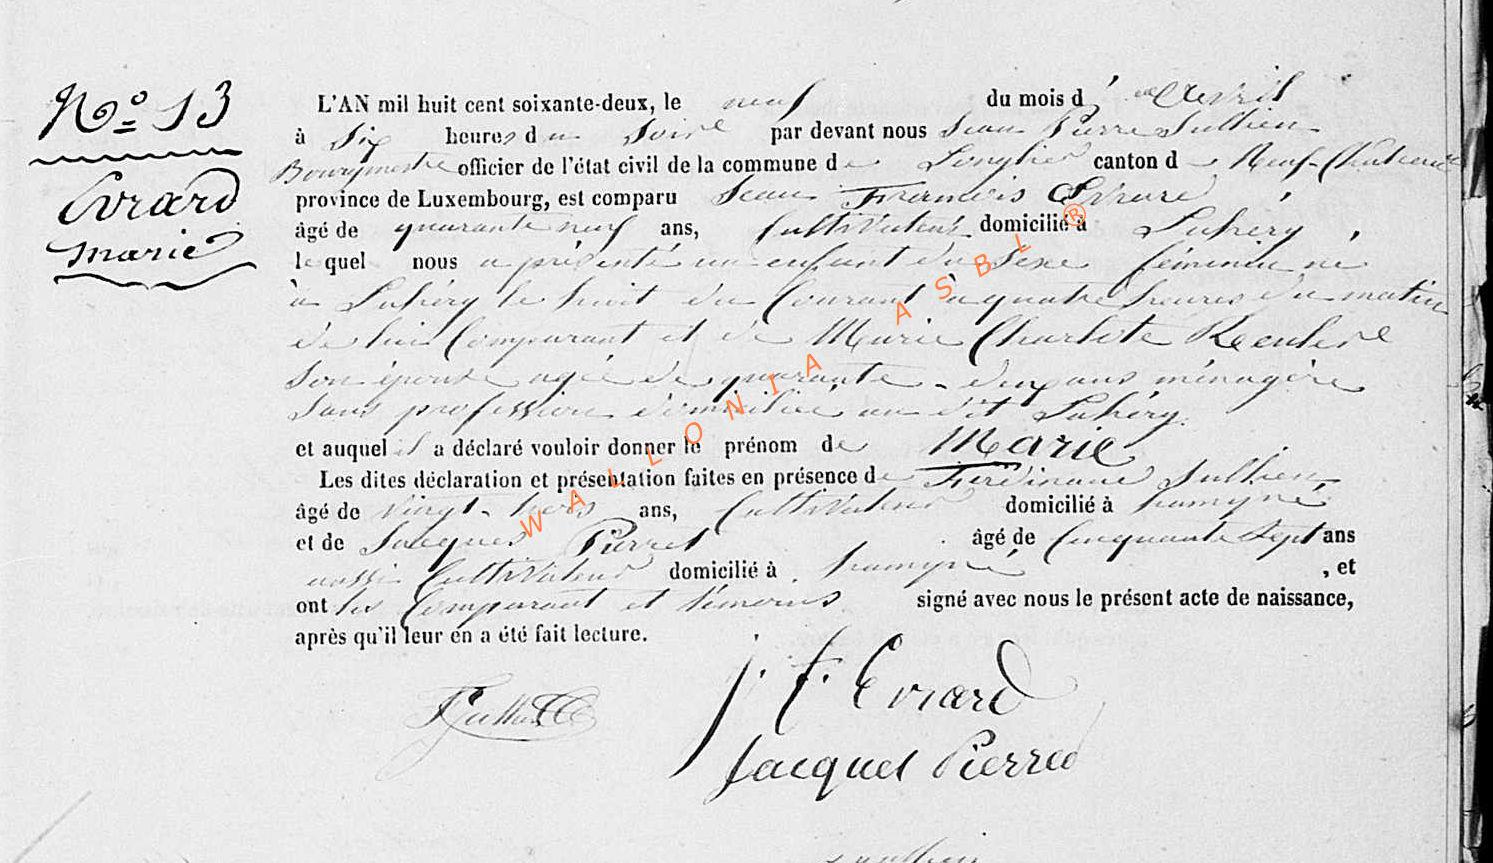 N° 13
Evrard
Marie
L'AN mil huit cent soixante-deux, le neuf du mois d'avril
à Six heures du Soire par devant nous Jean Pierre Sulhien
Bourgmestre officier de l'état civil de la commune de Longlier canton de Neuf-Chateau
province de Luxembourg, est comparu Jean Francois Evrard
âgé de quarante neuf ans, Cultivateur domicilié à Lahéry,
lequel nous a présenté un enfant du Sexe féminin né
à Lahéry le huit du Courant à quatre heures du matin
de lui Comparant et de Marie Charlote Reculere
Son épouse agée de quarante-deux ans ménagère
Sans profession domiciliée au dit Lahéry.
et auquel il a déclaré vouloir donner le prénom de Marie
Les dites déclaration et présentation faites en présence de Ferdinand Sulhien
âgé de vingt-trois ans, Cultivateur domicilié à
et de Jacques Pierret âgé de Cinquante Sept ans
aussi Cultivateur domicilié à , et
ont les Comparant et témoins signé avec nous le présent acte de naissance,
après qu'il leur en a été fait lecture.
J. F. Evrard
Jacques Pierret
WALLONIA ASBL ®